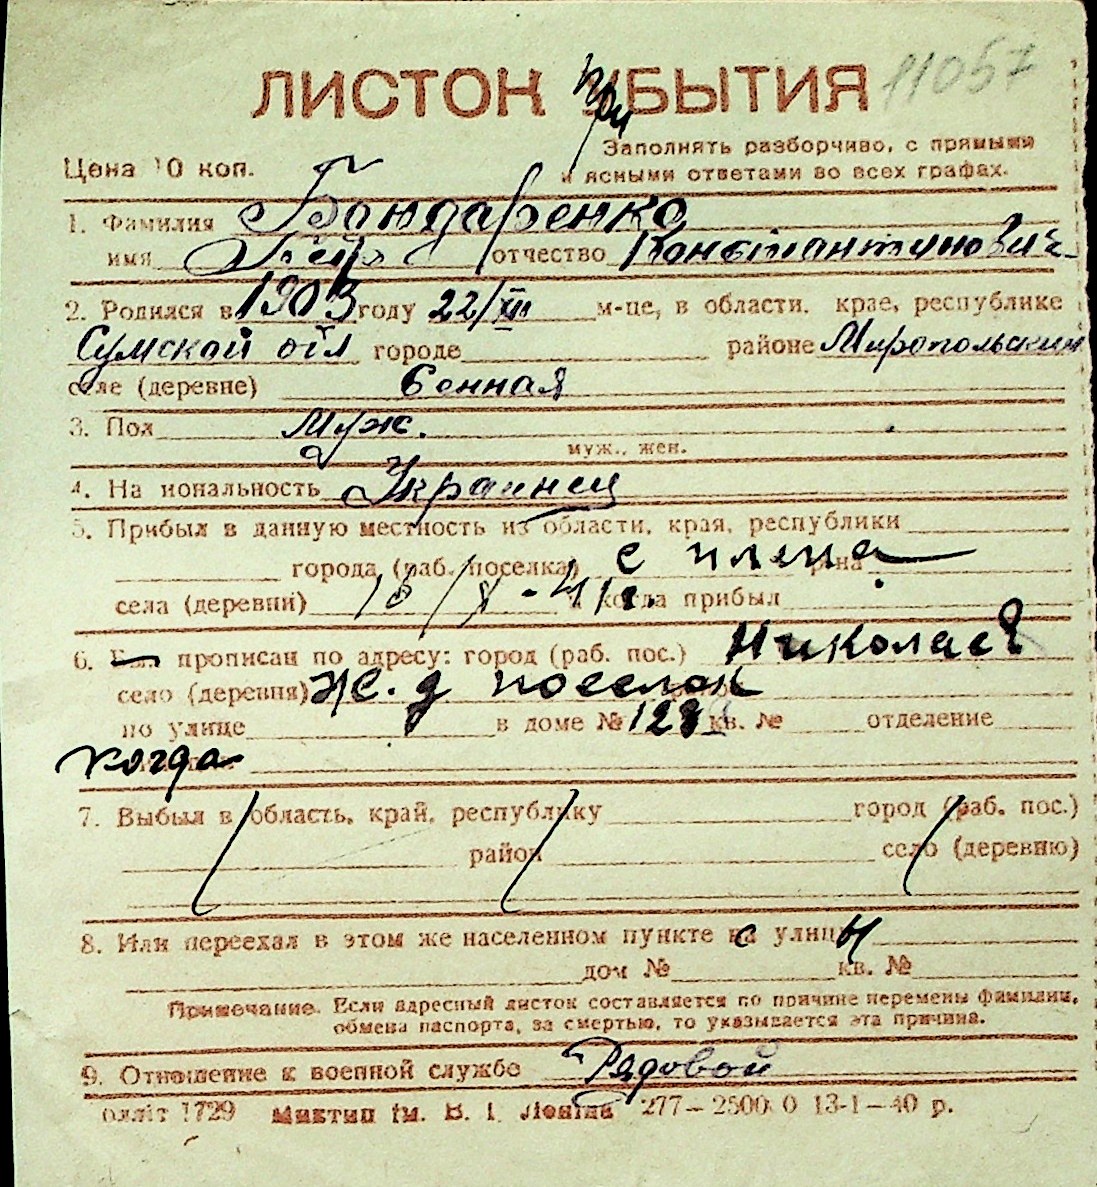 ЛИСТОК При БЫТИЯ 11057
Заполнять разборчиво, с прямыми
Цена 10 коп. и ясными ответами во всех графах.
1. Фамилия Бондаренко
имя Петр отчество Константинович
2. Родился в 1903 году 22/XII м-це, в области, крае, республике
Сумской обл городе районе Миропольский
селе (деревне) Сенная
3. Пол Муж.
муж., жен.
4. Национальность Украинец
5. Прибыл в данную местность из области, края, республики
города (раб. поселка) с плена р-на
села (деревни) 16/X-41г. когда прибыл
6. прописан по адресу: город (раб. пос.) Николаев
село (деревня) ж.д поселок
по улице в доме № 128 кв. № отделение
когда
7. Выбыл в область, край, республику город (раб. пос.)
район село (деревню)
8. Или переехал в этом же населенном пункте с улицы
дом № кв. №
Примечание. Если адресный листок составляется по причине перемены фамилии,
обмена паспорта, за смертью, то указывается эта причина.
9. Отношение к военной службе Рядовой
олліт 1729 Миктип ім. В. І. Леніна 277—2500 0 13-1—40 р.